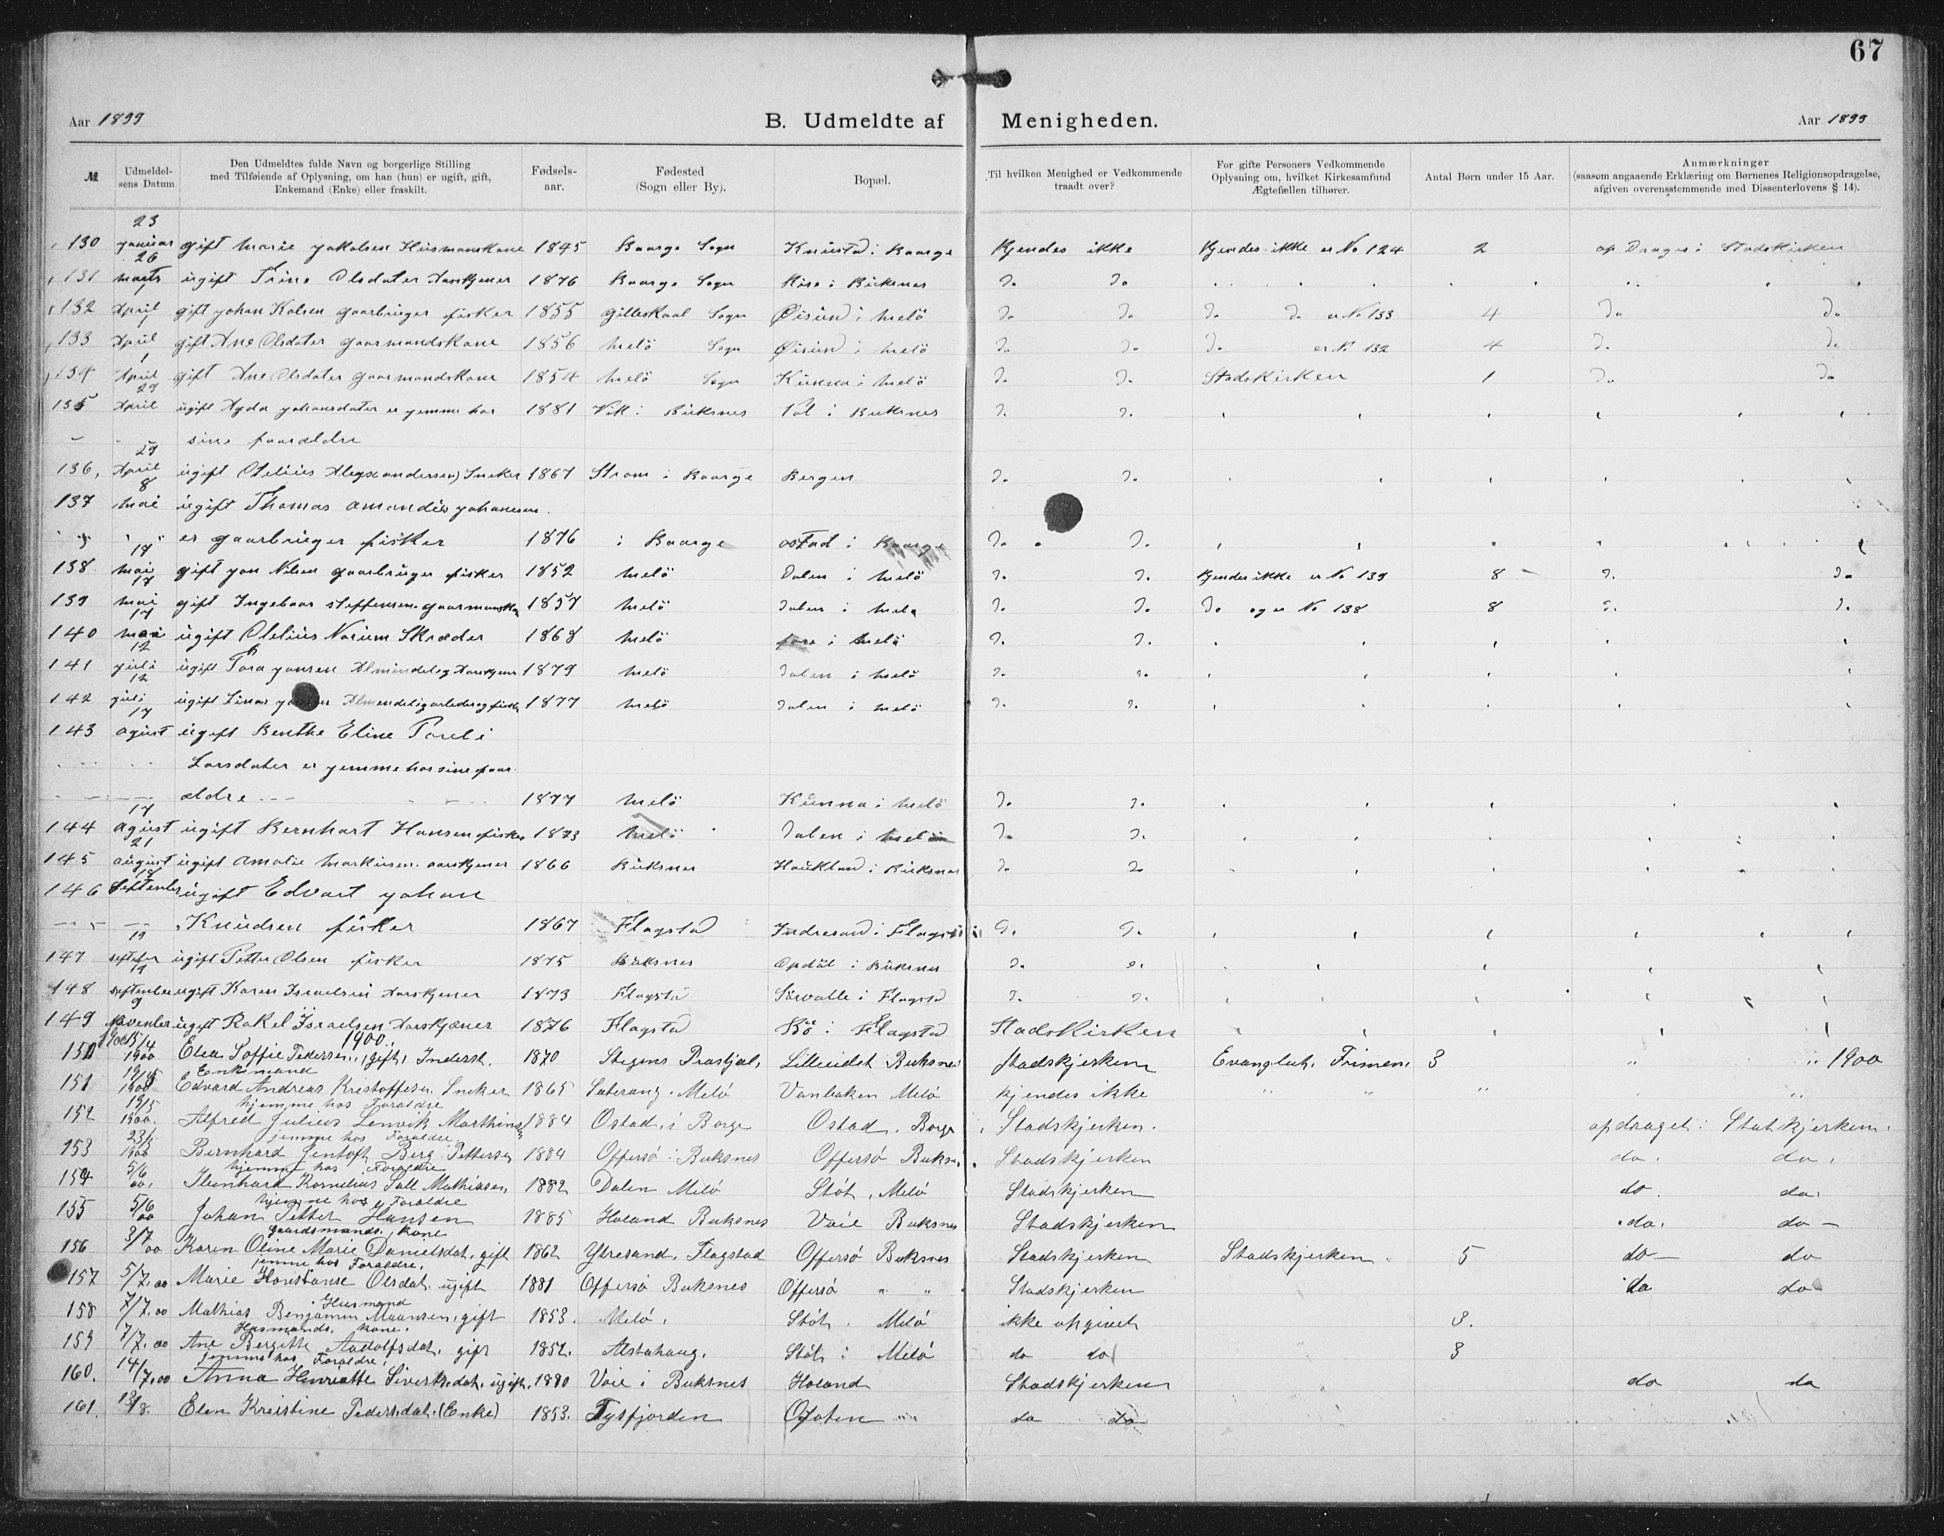 67
Aar 1899 B. Udmeldte af Menigheden. Aar 1899
№ Udmeldelsens Datum. Den Udmeldtes fulde Navn og borgerlige Stilling med Tilføiende af Oplysning, om han (hun) er ugift, gift, Enkemand (Enke) eller fraskilt. Fødselsaar. Fødested (Sogn eller By). Bopæl. Til hvilken Menighed er Vedkommende traadt over? For gifte Personers Vedkommende Oplysning om, hvilket Kirkesamfund Ægtefællen tilhører. Antal Børn under 15 Aar. Anmærkninger (saasom angaaende Erklæring om Børnenes Religionsopdragelse, afgiven overensstemmende med Dissenterlovens § 14).
23
130 januar gift Marie Jakolsen Husmanskone 1845 Baarge Sogn Knustad i Baarge kjendes ikke kjendes ikke er No 124 2 op Drages i Stadskirken
26
131 marts ugift Trine Olsdater Aarstjener 1876 Baarge Sogn Buksnes Do Do
1
132 April gift Johan Kolsen gaarbruger fisker 1855 Gilleskaal Sogn Øisund i Melö Do Do Do Do er No 133 4 Do Do
1
133 April gift Ane Olsdater gaarmandskone 1856 Melö Sogn Øisund i Melö Do Do Do er No 132 4 Do Do
1
134 April gift Ane Olsdater gaarmandskone 1854 Melö Sogn Kunna i Melö Do Do Stadskirken 1 Do Do
29
135 April ugift Agda Johansdater er jemme hos 1881 Vik i Buksnes Vol i Buksnes Do Do
sine foraældre
29
136. April ugift Otelius Alegsandersen Sneker 1867 Strom i Baarge Bergen Do Do
8
137 mai ugift Thomas Amandius Johanesen
er gaarbruger fisker 1876 i Baarge ostad i Baarge Do Do
18
138 mai gift Jon Nilsen gaarbruger fisker 1852 Melö Dalen i Melö Do Do kjendes ikke er No 139 8 Do Do
17
139 mai gift Ingebaar Steffensen gaarmanskone 1857 Melö Dalen i Melö Do Do Do og er No 138 8 Do Do
17
140 mai ugift Otelius Norum Skræder 1868 Melö i Melö Do Do
12
141 juli ugift Tora Jonsen Almindelig Aarstjener 1879 Melö Dalen i Melö Do Do
12
142 juli ugift Linas Almendeligarbeder og fisker 1877 Melö Dalen i Melö Do Do
17
143 agust ugift Benthe Eline Toreli
Larsdater er jemme hos sine foor
ældre 1877 Melö Kunna i Melö Do Do
17
144 agust ugift Bernhart Hansen fisker 1873 Melö Dalen i Melö Do Do
21
145 august ugift Amalie Markusen aarstjener 1866 Buksnes Haukland i Buksnes Do Do
18
146 Septenber ugift Edvart Johan
Knudsen fisker 1867 Flagstad Indresand i Flagstad Do Do
19
147 septeber ugift Petter Olsen fisker 1875 Buksnes Opdöl i Buksnes Do Do
19
148 septenber ugift Karen Israelsen Aarstjener 1873 Flagstad i Flagstad Do Do
9
149 Novenber ugift Rakel Israelsen Aarstjæner 1876 Flagstad i Flagstad Stadskirken
1900.
150 15/4 1900 Elea Soffie Pedersen, gift, Inderst. 1870 Stegens Prastgjæl, Lilleeidet Buksnes Stadskjerken Evangluth. Frimen. 3 " " 1900
Enkemand
151 19/5 1900 Edvard Andreas Kristoffersen Sneker 1865 Melö Vanbaken Melö kjendes ikke " " " "
hjemme hos Foraldre
152 19/5 1900. Alfred Julius Lenvik Marthins 1884 Ostad i Borge Ostad, Borge Stadskjerken. opdraget i Statkjerken.
jemme hos Foraldre
153 23/5 1900 Bernhard Jentoft Berg Pettersen 1884 Offersø i Buksnes Offersø Buksn. Stadskjerken do. do.
hjemme hos Foraldre
154 5/6 00. Kornelius Mathiasen 1882 Dalen Melö Støt, Melö Stadskjerken do. do.
hjemme hos Foraldre
155 5/6 00 Johan Petter Hansen 1885 Holand Buksnes Voie Buksnes Stadskjerken do. do —
Gaardsmands Kone
156 3/7 00 Karen Oline Marie Danielsdat, gift 1862 Ytresand, Flagstad Offersø Buksnes Stadskjerken Stadskjerken 5 do — do
jemme hos Foraldre.
157 5/7.00 Marie Konstanse Olsdat, ugift 1881 Offersø Buksnes Offersø " " Stadskjerken do do
Husmand
158 7/7.00 Mathias Benjamin Maansen, gift 1853. Melö. Støt. Melö ikke opgivet 3.
Husmands kone.
159 7/7.00 Ane Bergitte Aadolfsdat. gift 1852. Alstahaug. Støt i Melö do do 3
jemme hos Foraldre.
160. 14/7.00 Anna Henriette Siversdat. ugift. 1880 Voie i Buksnes Holand Stadskjerken do do
161. 13/8. Elen Kreistine Pedersdat. (Enke) 1853. Tysfjorden Ofoten " do do